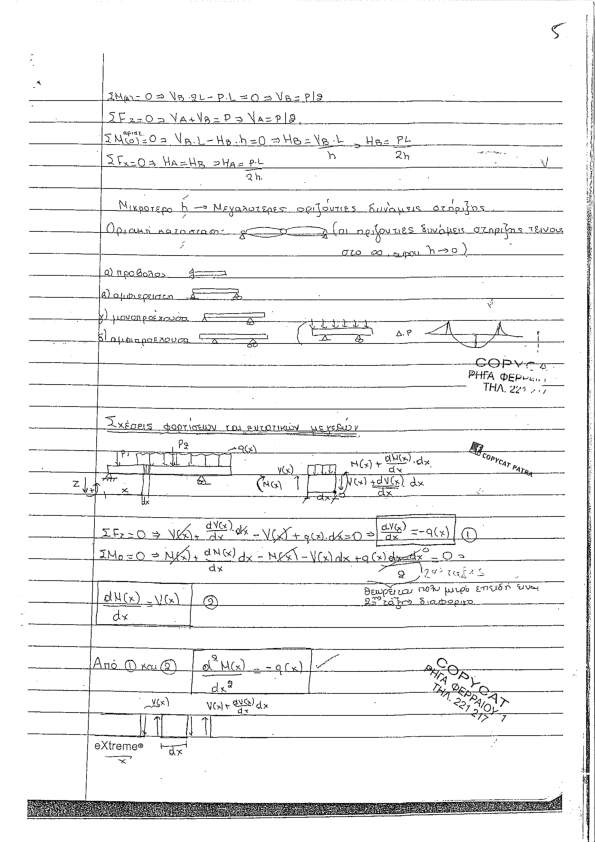 5
ΣM(A)=0 ⇒ VB·2L-P·L=0 ⇒ VB=P/2
ΣFz=0 ⇒ VA+VB=P ⇒ VA=P/2
ΣM(O)^αρισ.=0 ⇒ VB·L-HB·h=0 ⇒ HB=VB·L/h ⇒ HB=PL/2h
ΣFx=0 ⇒ HA=HB ⇒ HA=P·L/2h
Μικροτερο h → Μεγαλυτερες οριζόντιες δυνάμεις στήριξης
Οριακή κατασταση: (οι οριζοντιες δυνάμεις στηριξης τεινουν
στο ∞ αφου h→0)
α) προβολος
β) αμφιερειστη
γ) μονοπροέχουσα
δ) αμφιπροεχουσα Δ.Ρ
COPYCAT
ΡΗΓΑ ΦΕΡΡΑΙΟΥ
ΤΗΛ. 221 217
Σχέσεις φορτίσεων και εντατικών μεγεθών
COPYCAT PATRA
P1 P2 q(x)
V(x) M(x)+dM(x)/dx·dx
M(x) V(x)+dV(x)/dx dx
z x dx dx
ΣFz=0 ⇒ V(x)+dV(x)/dx dx-V(x)+q(x)·dx=0 ⇒ dV(x)/dx=-q(x) ①
ΣMo=0 ⇒ M(x)+dM(x)/dx dx-M(x)-V(x)dx+q(x)dx·dx/2=0 ⇒
θεωρείται πολυ μικρο επειδή ειναι
2ης τάξης διαφορικο
dM(x)/dx=V(x) ②
Από ① και ② d²M(x)/dx²=-q(x)
COPYCAT
ΡΗΓΑ ΦΕΡΡΑΙΟΥ 1
ΤΗΛ. 221 217
V(x) V(x)+dV(x)/dx dx
eXtreme®
x dx